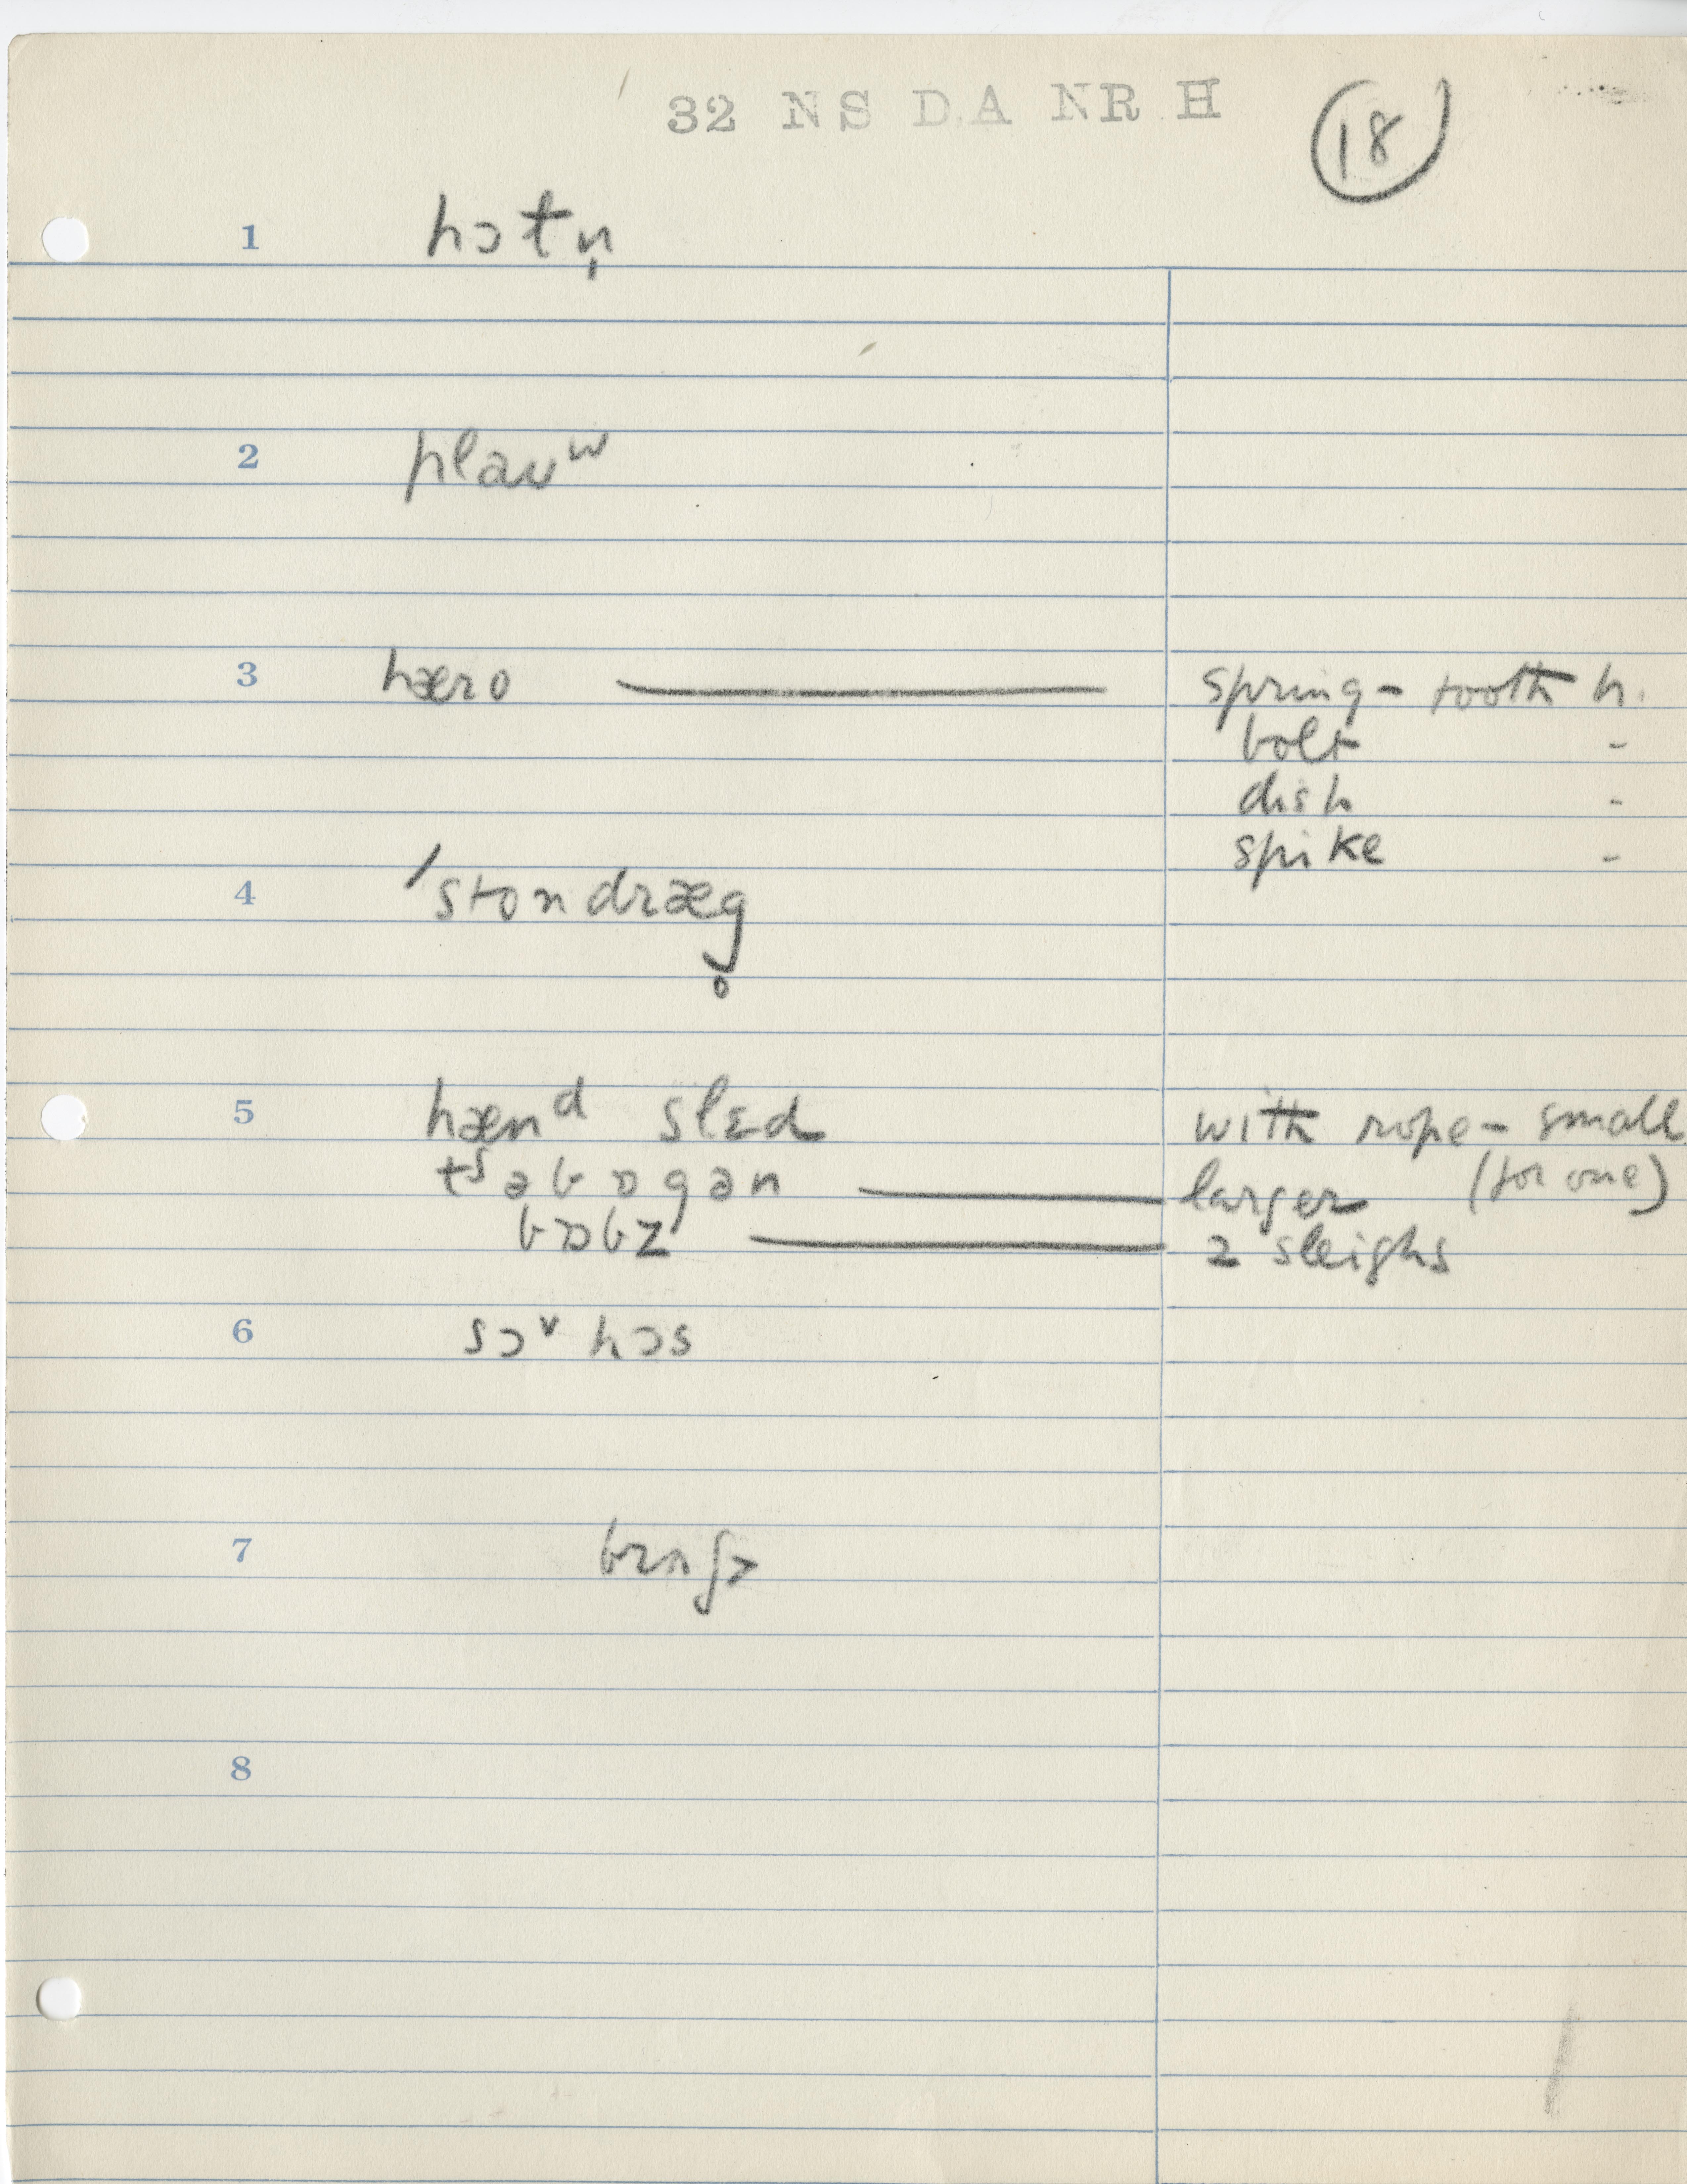 32 NS DA NR H
18
1 hɔtn̩
2 plauʷ
3 hæro — spring-tooth h.
bolt -
dish -
spike -
4 ˈstondræg̥
5 hænᵈ slɛd with rope - small
tˢəbɒgən — larger (for one)
bɒbz — 2 sleighs
6 sɔᵛ hɔs
7
8